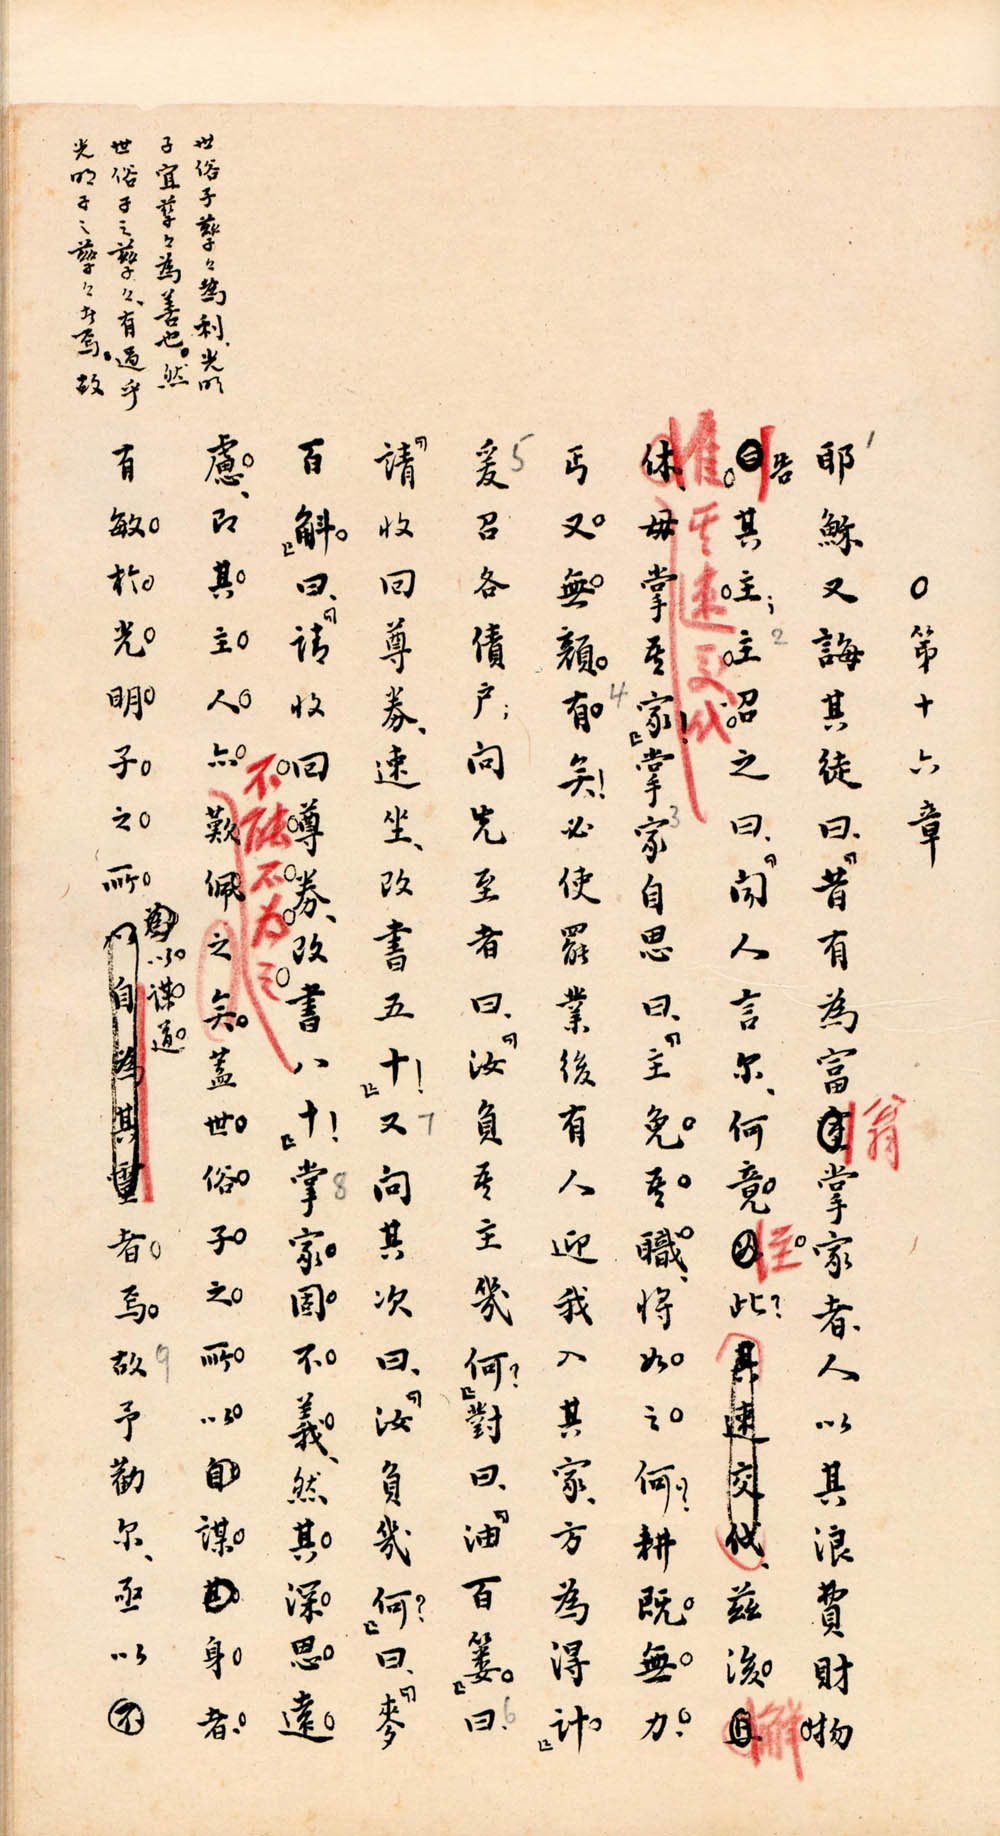 ○第十六章
1 耶穌又誨其徒曰、『昔有為富翁掌家者、人以其浪費財物
告其主；2 主召之曰、『聞人言尔、何竟至此？其速交代、茲後解
惟其速交代
休、毋掌吾家！』3 掌家自思曰、『主免吾職、將如之何？耕既無力、
丐又無顏。4 有矣！必使罷業後有人迎我入其家、方為得計。』
5 爰召各債户；問先至者曰、『汝負吾主幾何？』對曰、『油百簍。』6 曰、
『請收回尊券、速坐、改書五十！』7 又問其次曰、『汝負幾何？』曰、『麥
百斛。』曰、『請收回尊券、改書八十！』8 掌家固不義、然其深思遠
不能不為之
慮、即其主人亦歎佩之矣。蓋世俗子之所以自謀其身者、
有敏於光明子之所以自為其靈者焉。9 故予勸尔、亟以不
為以謀道
世俗子孳々為利、光明
子宜孳々為善也。然
世俗子之孳々、有過乎
光明子之孳々者焉。故